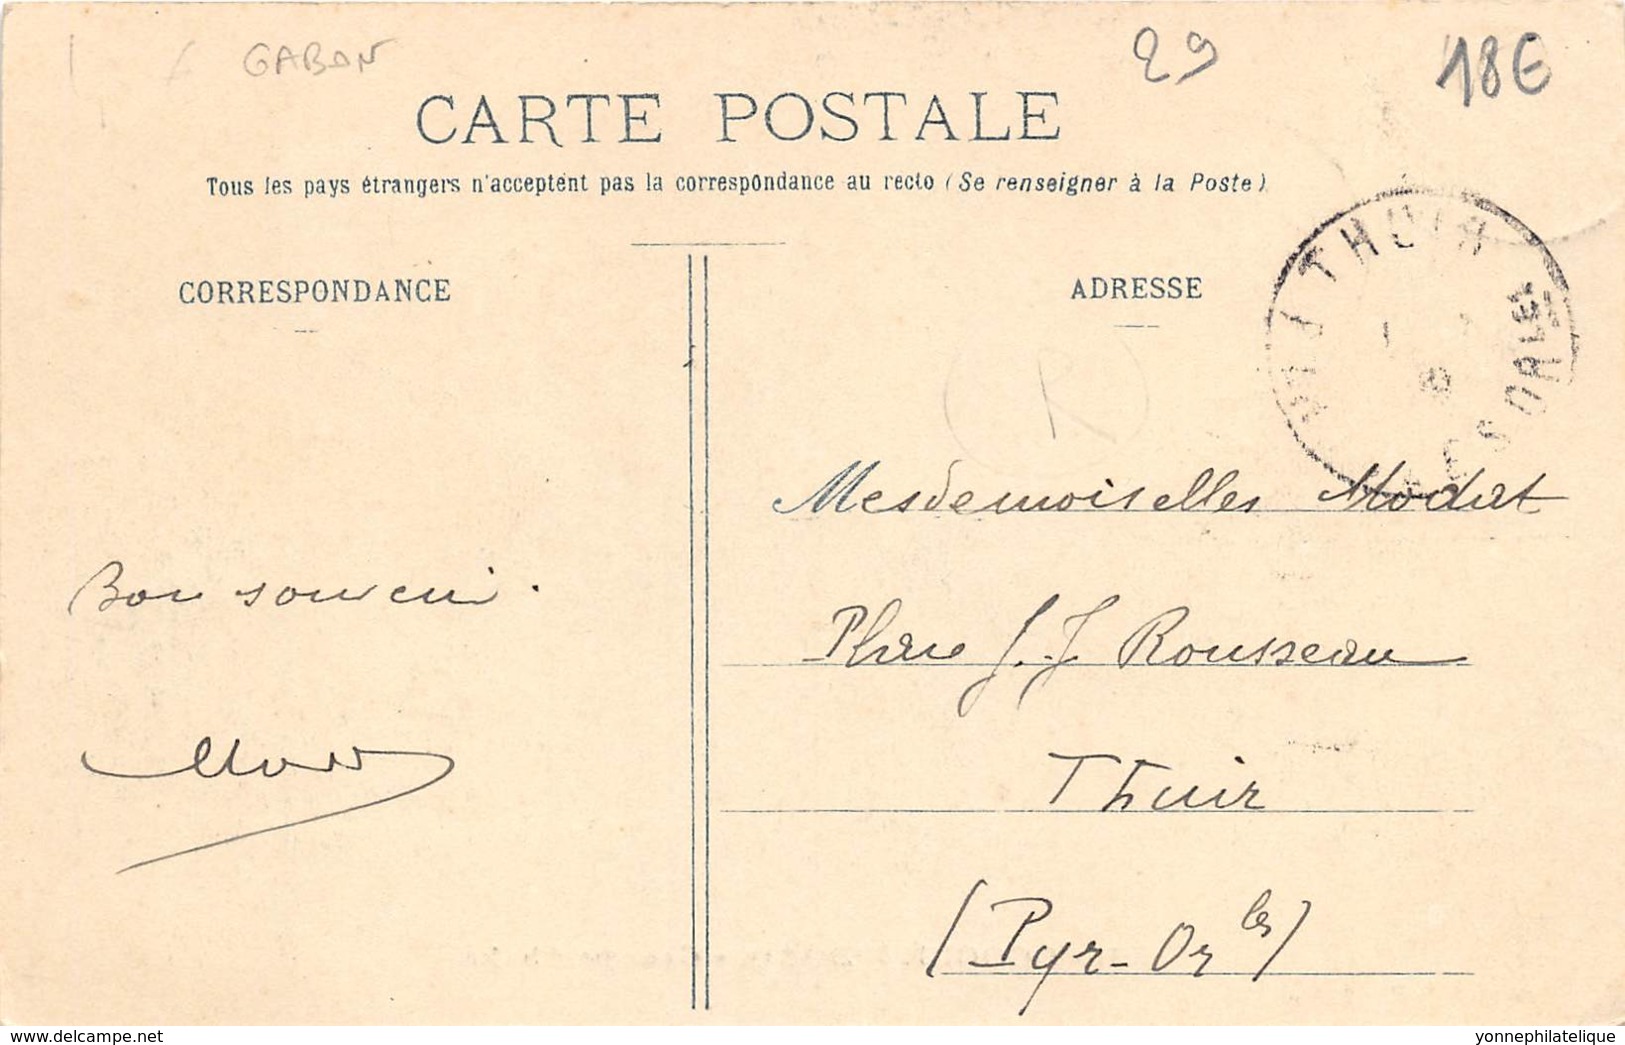 GABON
29
18€
CARTE POSTALE
Tous les pays étrangers n'acceptent pas la correspondance au recto (Se renseigner à la Poste)
CORRESPONDANCE
ADRESSE
THUIR
R
Mesdemoiselles Modat
Bon souvenir.
Place J. J Rousseau
Thuir
(Pyr-Or les)
www.delcampe.net
yonnephilatelique